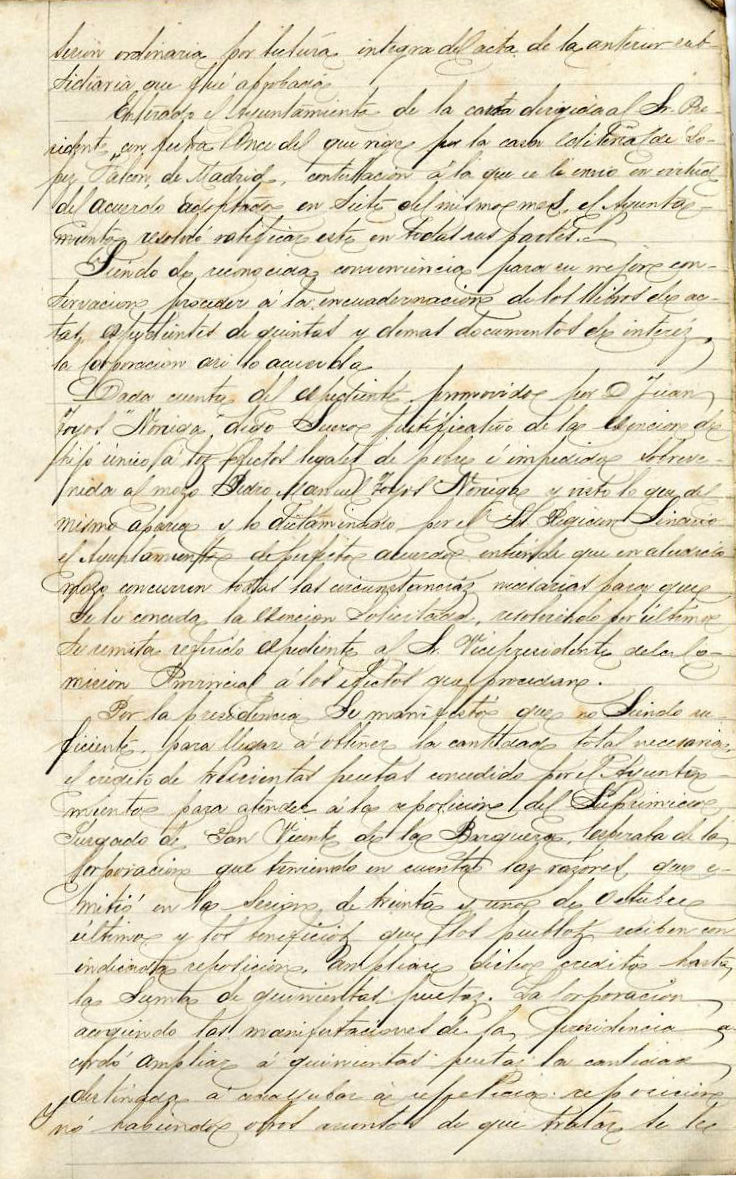 sesion ordinaria por lectura integra del acta de la anterior sub-
sidiaria que fué aprobada
Enterado el Ayuntamiento de la carta dirigida al Sr. Pre-
sidente con fecha once del que rige por la casa editorial de Lo-
pez Falcon de Madrid, contestacion á la que se le envio en virtud
del acuerdo adoptado en siete del mismo mes, el Ayunta-
miento resolvió ratificar este en todas sus partes.
Siendo de reconocida conveniencia para su mejor con-
servacion proceder á la encuadernacion de los libros de ac-
tas, expedientes de quintas y demas documentos de interés,
la Corporacion asi lo acuerda
Dada cuenta del expediente promovido por D Juan
Hoyos "Noriega", digo Suero justificativo de la esencion de
hijo único á los efectos legales de pobre é impedido sobreve-
nida al mozo Pedro Manuel Hoyos Noriega y visto lo que del
mismo aparece y lo dictaminado por el Sr. Regidor Sindico
el Ayuntamiento de perfecto acuerdo entiende que en aludido
mozo concurren todas las circunstancias necesarias para que
se le conceda la esencion solicitada, resolviendo por último
se remita referido expediente al Sr. Vicepresidente de la Co-
mision Provincial á los efectos que procedan.
Por la presidencia se manifestó que no siendo su-
ficiente para llegar á obtener la cantidad total necesaria,
el credito de trescientas pesetas concedido por el Ayunta-
miento para atender á la reposicion del suprimido
Jurgado de San Vicente de la Barquera, esperaba de la
Corporacion que teniendo en cuenta las razones que e-
mitió en la sesion de treinta y uno de Octubre
último y los beneficios que los pueblos reciben con
indicada reposicion, ampliase dicho credito hasta
la suma de quinientas pesetas. La Corporacion
acogiendo las manifestaciones de la presidencia a-
cordó ampliar á quinientas pesetas la cantidad
destinada á á repetida reposicion
y no habiendo otros asuntos de que tratar se le